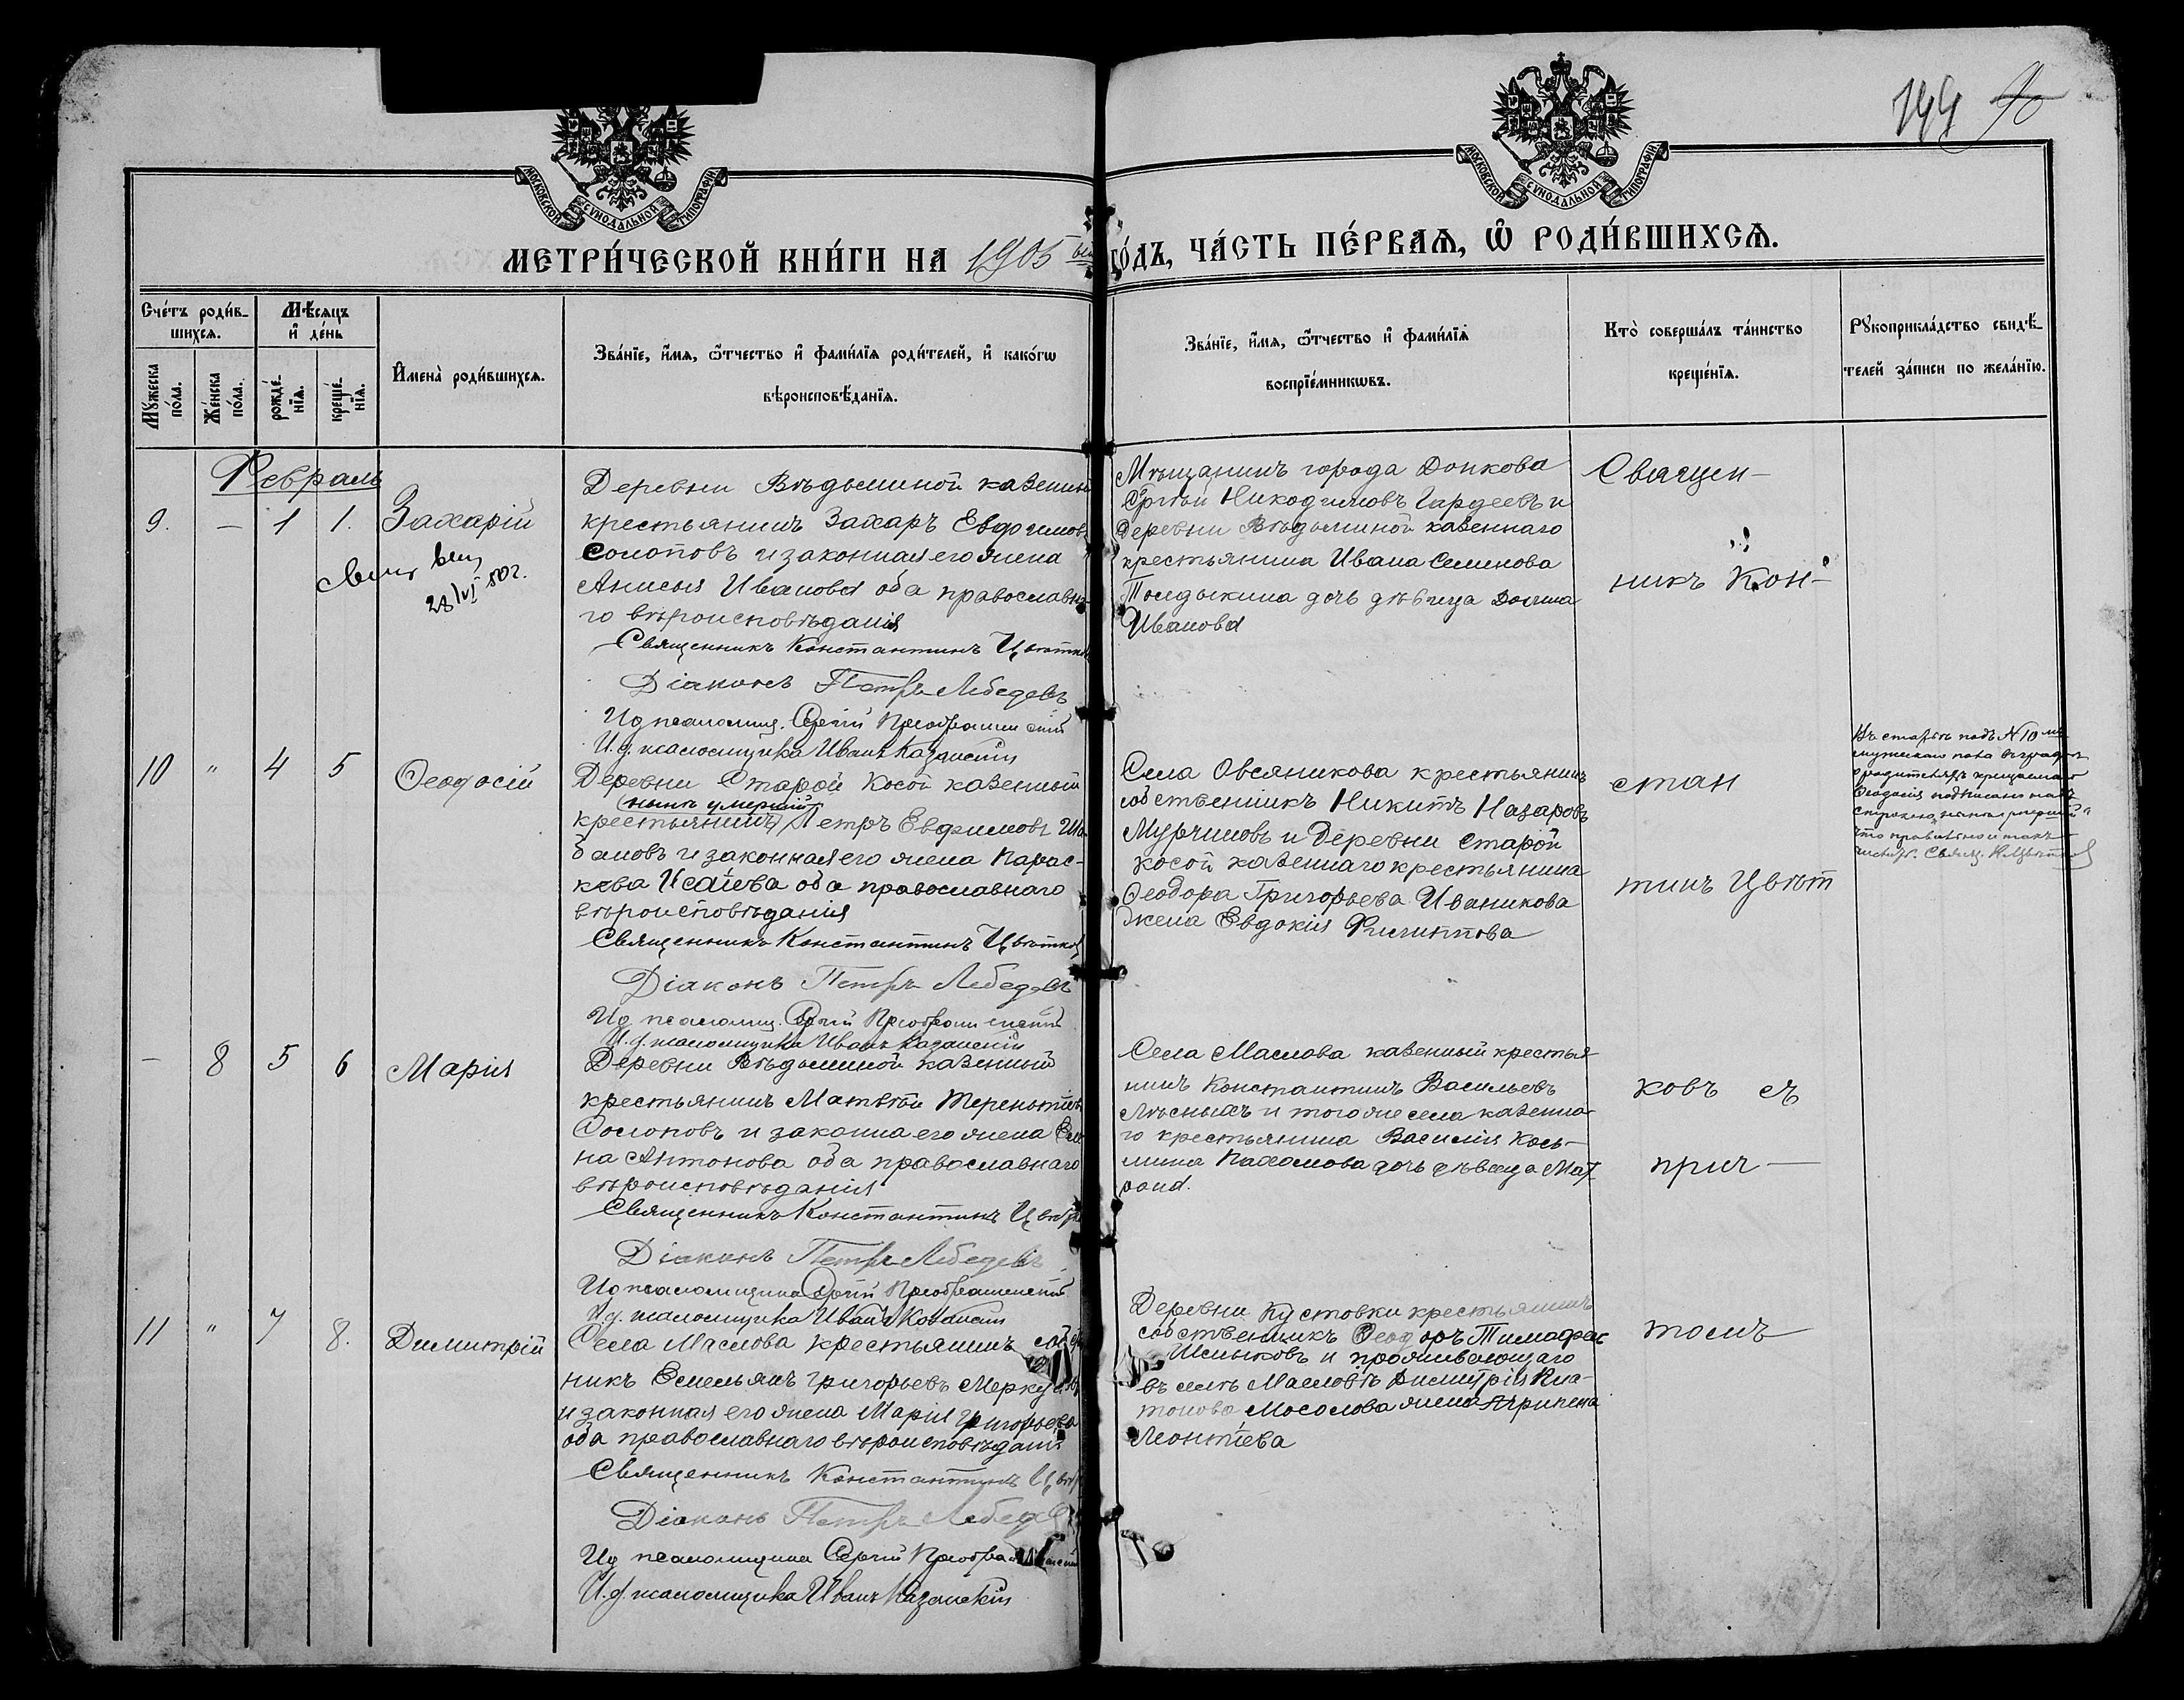 144 90
МОСКОВСКОЙ СѴНОДАЛЬНОЙ ТИПОГРАФІИ
МОСКОВСКОЙ СѴНОДАЛЬНОЙ ТИПОГРАФІИ
МЕТРИ́ЧЕСКОЙ КНИ́ГИ НА 1905 ый ГО́ДЪ, ЧА́СТЬ ПЕ́РВАѦ, Ѡ҆ РОДИ́ВШИХСѦ.
Сче́тъ роди́в-
шихсѧ.
Мꙋ́жеска по́ла.
Же́нска по́ла.
Мѣ́сѧцъ и҆ де́нь
рожде́-нїѧ.
креще́-нїѧ.
И҆мена̀ роди́вшихсѧ.
Зва́нїе, и҆́мѧ, ѻ҆́тчество и҆ фами́лїѧ роди́телей, и҆ како́гѡ
вѣроисповѣ́данїѧ.
Зва́нїе, и҆́мѧ, ѻ҆́тчество и҆ фами́лїѧ
воспрїе́мникѡвъ.
Кто̀ соверша́лъ та́инство
креще́нїѧ.
Рꙋкоприкла́дство свидѣ́-
телей за́писи по жела́нїю.
Февраль
9. — 1 1. Захарій
28/VI 50г.
Деревни Вѣдьминой казенный
крестьянинъ Захаръ Евдокимовъ
Солоповъ и законная его жена
Анисья Иванова оба православна-
го вѣроисповѣданія
Священникъ Константинъ Цвѣтков
Діаконъ Петръ Лебедевъ
Ид псаломщ. Сергій Преображенскій
И.д. псаломщика Иванъ Казанскій
Мѣщанинъ города Донкова
Сергѣй Никодимовъ Гардеевъ и
Деревни Вѣдьминой казеннаго
крестьянина Ивана Семенова
дочь дѣвица
Иванова
Священ-
никъ Кон-
10 " 4 5 Ѳеодосій
Деревни Старой Косой казенный
(нынѣ умершій)
крестьянинъ Петръ Евфимовъ Ша-
бановъ и законная его жена Парас-
кева Исаіева оба православнаго
вѣроисповѣданія
Священникъ Константинъ Цвѣтков
Діаконъ Петръ Лебедевъ
Ид псаломщ. Сергій Преображенскій
И.д. псаломщика Иванъ Казанскій
Села Овсяникова крестьянинъ
собственникъ Никита Назаровъ
Мурчиновъ и Деревни Старой
Косой казеннаго крестьянина
Ѳеодора Григорьева Иваникова
жена Евдокія Филиппова
стан
тинъ Цвѣт
Въ статьѣ подъ N 10 мъ
мужескаго пола въ графѣ
о родителяхъ крещаемаго
Ѳеодосія надписано надъ
строкою „нынѣ умершій"
что правильно и такъ
читать. Свящ. К. Цвѣтков
— 8 5 6 Марія
Деревни Вѣдьминой казенный
крестьянинъ Матѳей Терентіев
Солоповъ и законна его жена Еле
на Антонова оба православнаго
вѣроисповѣданія
Священникъ Константинъ Цвѣтк
Діаконъ Петръ Лебедевъ
Ид псаломщика Сергій Преображенскій
И.д. псаломщика Иванъ Казанскій
Села Маслова казенный крестья-
нинъ Константинъ Васильевъ
Лѣсныхъ и того же села казенна-
го крестьянина Василія Кось-
мина Пахомова дочь дѣвица Мат-
рона.
ковъ съ
прич —
11 " 7 8. Димитрій
Села Маслова крестьянинъ соб
никъ Емельянъ Григорьевъ Меркул
и законная его жена Марія Григорьева
оба православнаго вѣроисповѣданія
Священникъ Константинъ Цвѣт
Діаконъ Петръ Лебедев
Ид псаломщика Сергій Преображенскій
И.д. псаломщика Иванъ Казанскій
Деревни Кустовки крестьянинъ
собственникъ Ѳеодоръ Тимофеев
и проживающаго
въ селѣ Масловѣ Димитрія Пла-
тонова Мосолова жена Агрипена
Леонтіева
томъ